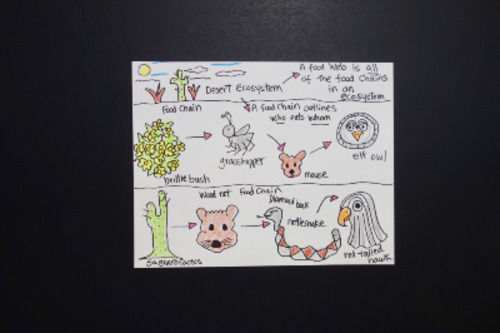 A food web is all
of the food chains
in an
ecosystem
Desert Ecosystem
Food Chain
A food chain outlines
who eats whom
grasshopper
mouse
elf owl
brittle bush
Wood rat Food Chain
Diamond back
rattlesnake
Saguaro Cactus
red-tailed
hawk